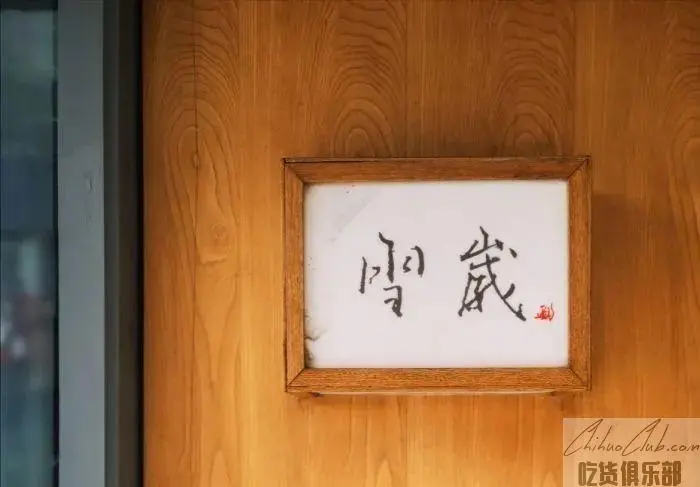 歲
ChihuoClub.com
吃货俱乐部